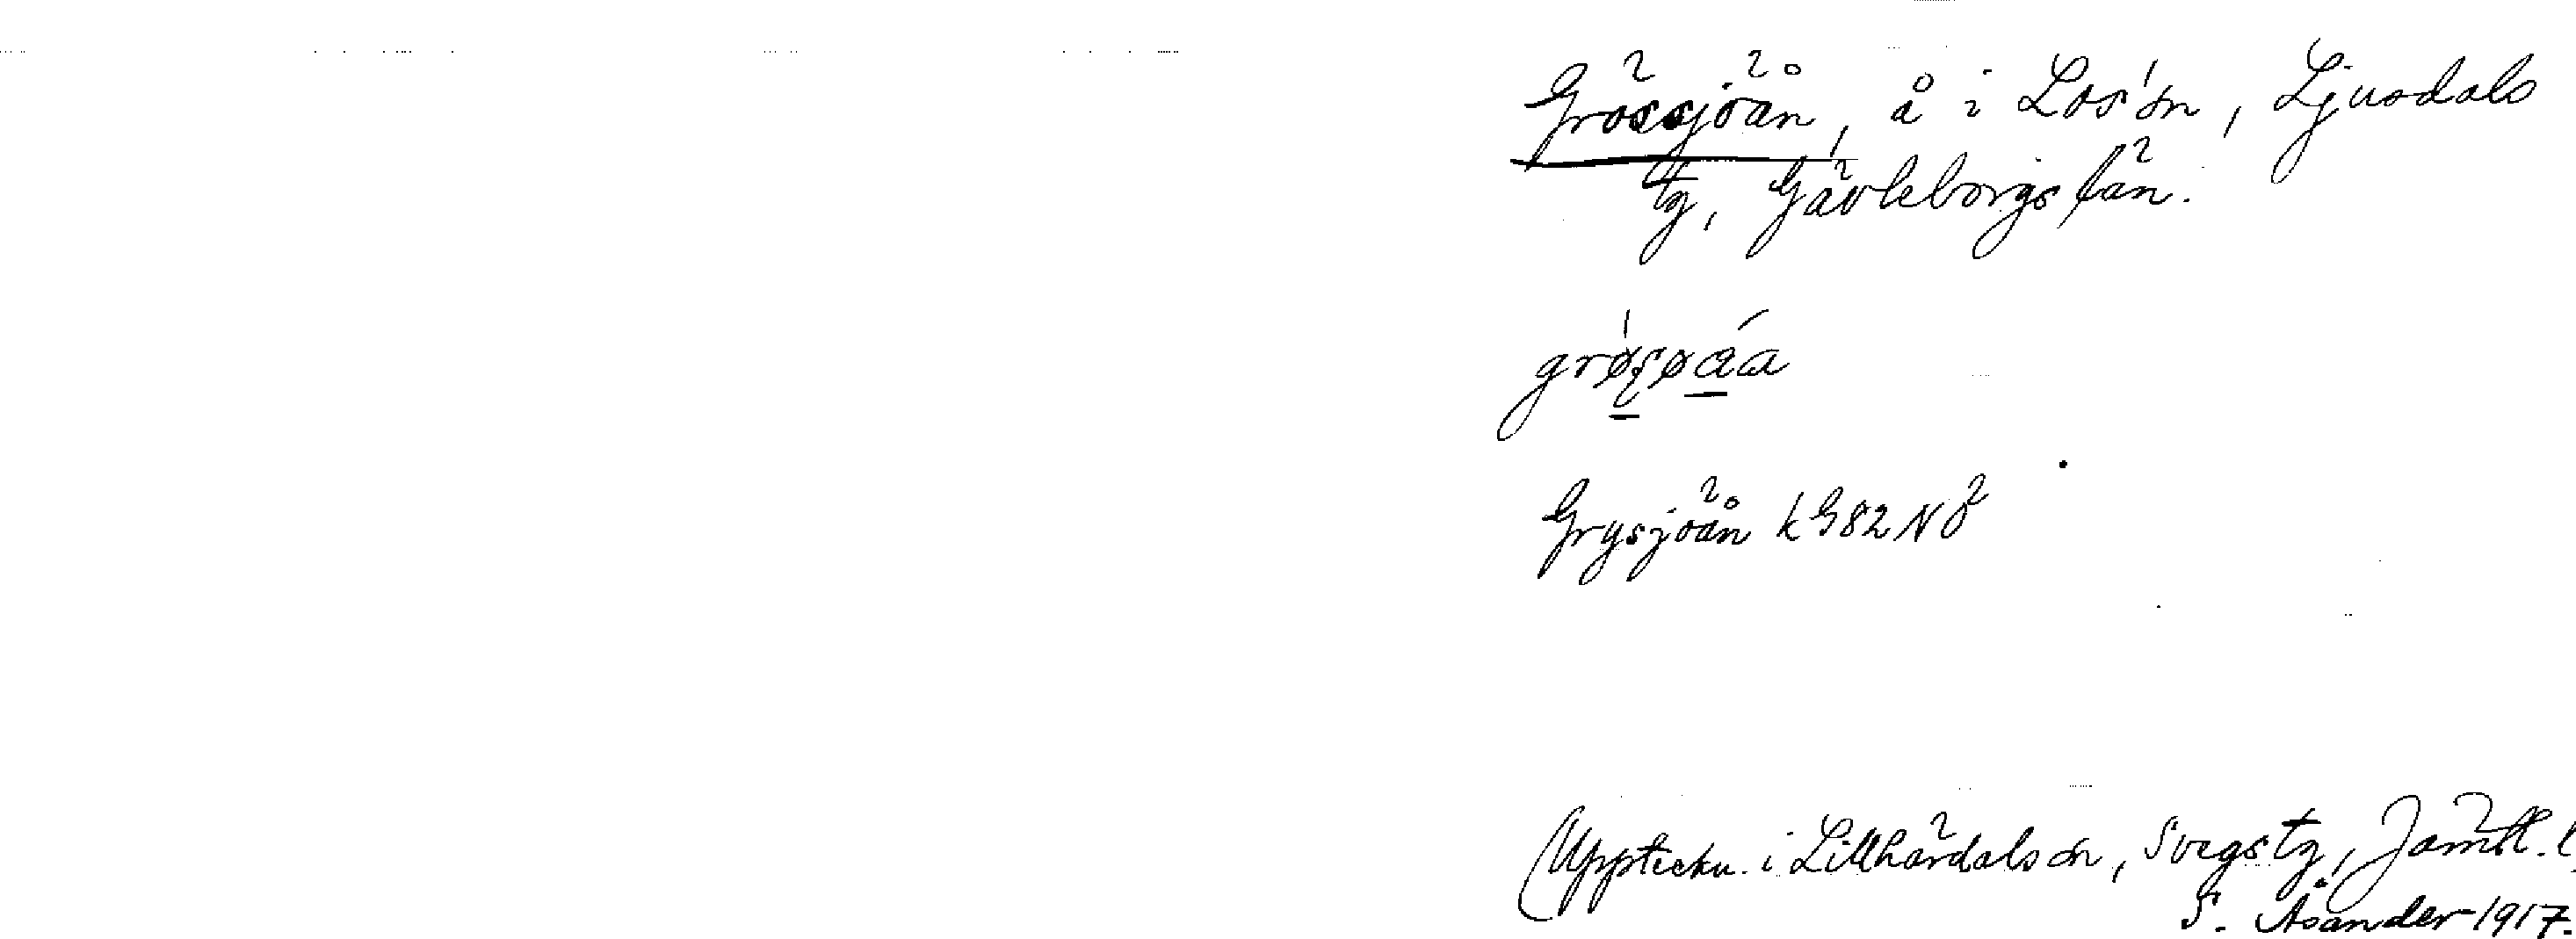 Grössjöån, å i Los' sn, Ljusdals
tg, Gävleborgs län.
Grysjöån k G82 NÖ
(Uppteckn. i Lillhärdals sn, Svegs tg, Jämtl. l.
S. Åsander 1917.